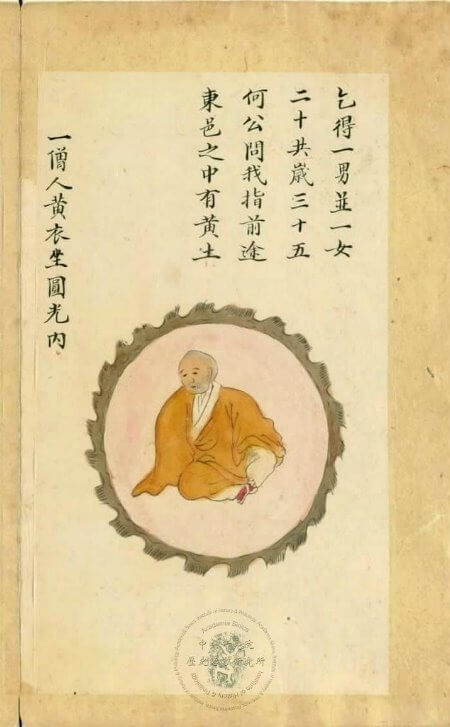 乞得一男並一女
二十共歲三十五
何公問我指前途
東邑之中有黃土
一僧人黃衣坐圓光內
Academia Sinica